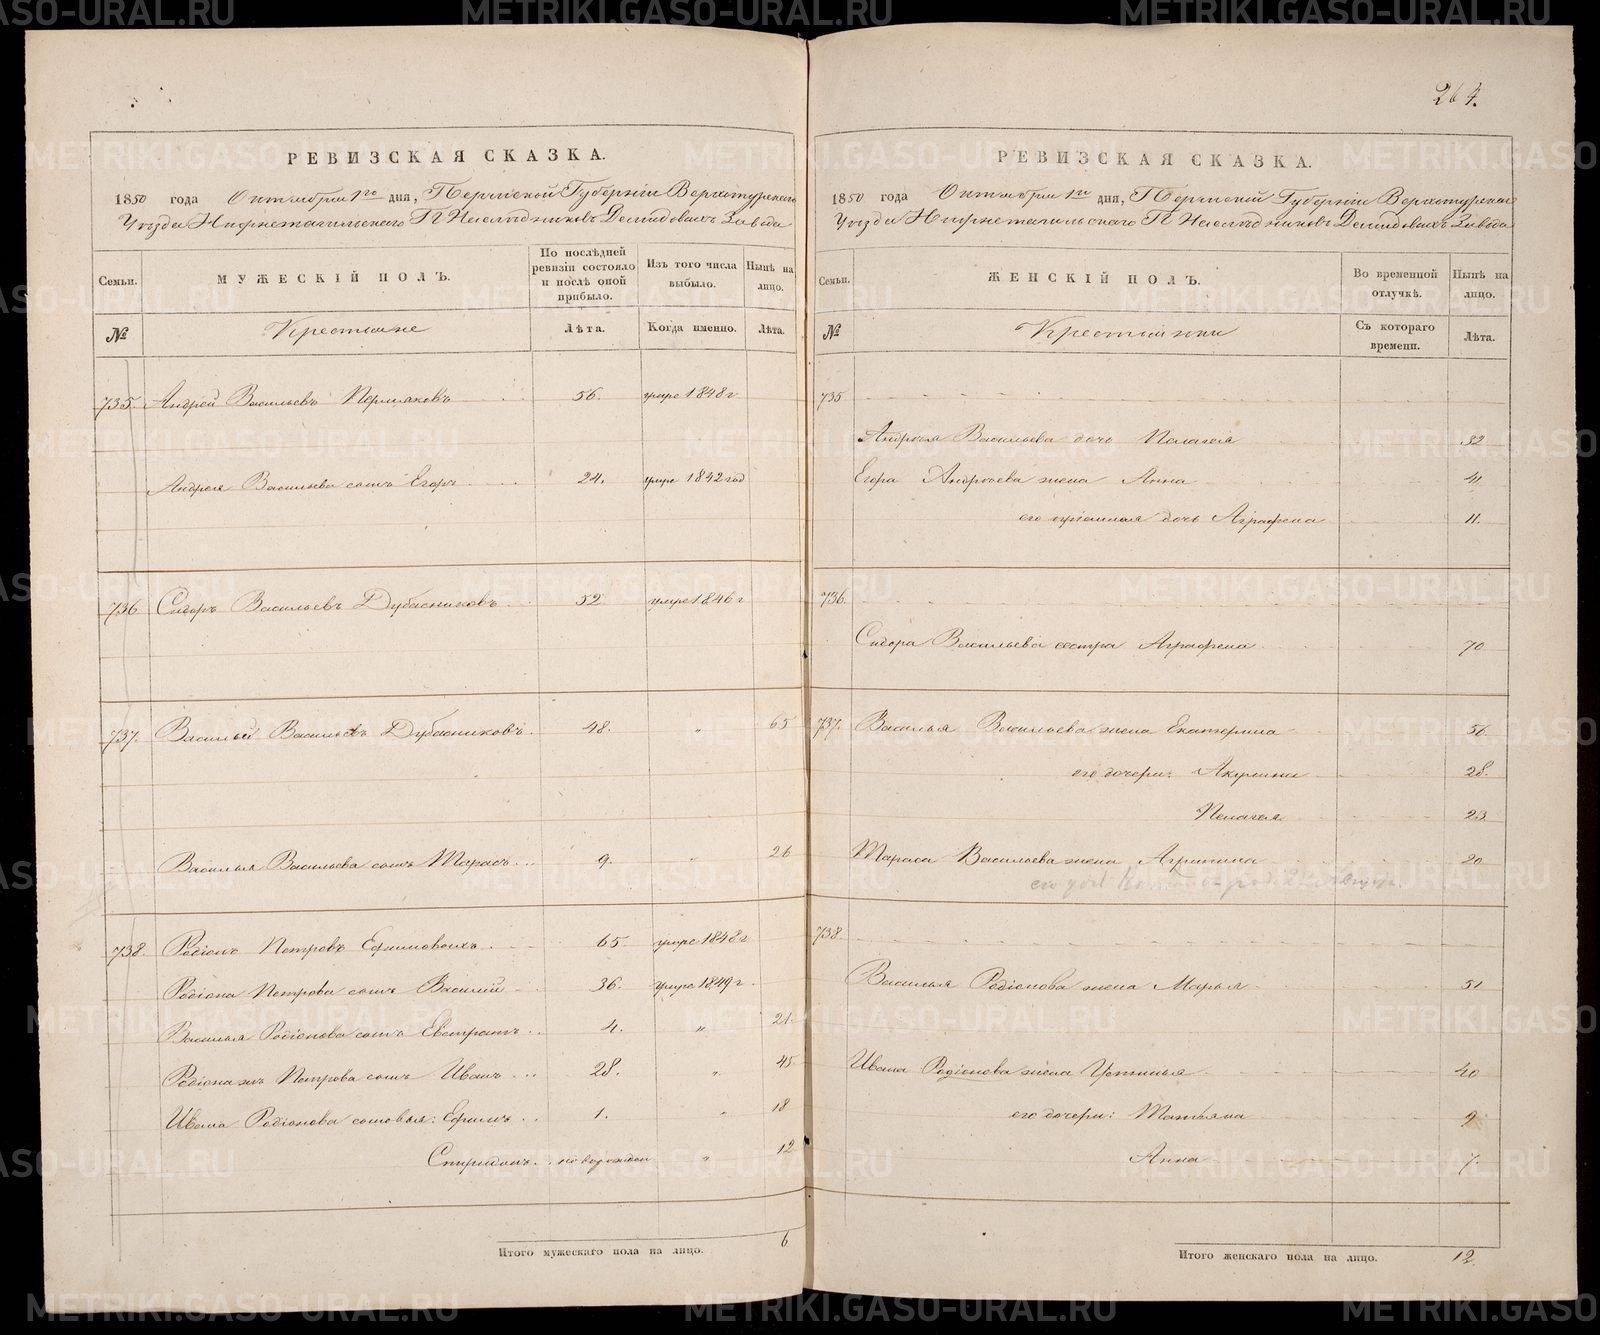 264.
РЕВИЗСКАЯ СКАЗКА.
1850 года Октября 1го дня, Пермской Губернiи Верхотурскаго
Уѣзда Нижнетагильскаго Г Наслѣдниковъ Демидовыхъ Завода
Семьи. МУЖЕСКIЙ ПОЛЪ. По послѣдней ревизiи состояло и послѣ оной прибыло. Изъ того числа выбыло. Нынѣ на лицо.
№ Крестьяне Лѣта. Когда именно. Лѣта.
735. Андрей Васильевъ Пермяковъ 56. умре 1848 г
Андрея Васильева сынъ Егоръ 24. умре 1842 год
736 Сидоръ Васильевъ Дубасниковъ 52 умре 1846 г
737. Василий Васильевъ Дубасниковъ. 48. „ 65
Василья Васильева сынъ Тарасъ 9. „ 26
738. Родiонъ Петровъ Ефимовыхъ 65. умре 1848 г
Родiона Петрова сынъ Василий 36. умре 1849 г.
Василья Родiонова сынъ Евстратъ 4. „ 21.
Родiона Петрова сынъ Иванъ 28. „ 45
Ивана Родiонова сыновья: Ефимъ 1. „ 18
Спиридонъ новорожден „ 12
Итого мужескаго пола на лицо. 6
РЕВИЗСКАЯ СКАЗКА.
1850 года Октября 1го дня, Пермской Губернiи Верхотурскаго
Уѣзда Нижнетагильскаго Г Наслѣдниковъ Демидовыхъ Завода
Семьи. ЖЕНСКIЙ ПОЛЪ. Во временной отлучкѣ. Нынѣ на лицо.
№ Крестьянки Съ котораго времени. Лѣта.
735
Андрея Васильева дочь Палагея 32
Егора Андреева жена Анна 41
его прiемная дочь Аграфена 11.
736.
Сидора Васильева сестра Аграфена 70
737. Василья Васильева жена Екатерина 56.
его дочери: Акулина 28.
Пелагея 23.
Тараса Васильева жена Агрипина 20
738.
Василья Родiонова жена Марья 51
Ивана Родiонова жена Устинья 40
его дочери: Татьяна 9
Анна 7.
Итого женскаго пола на лицо. 12.
METRIKI.GASO-URAL.RU